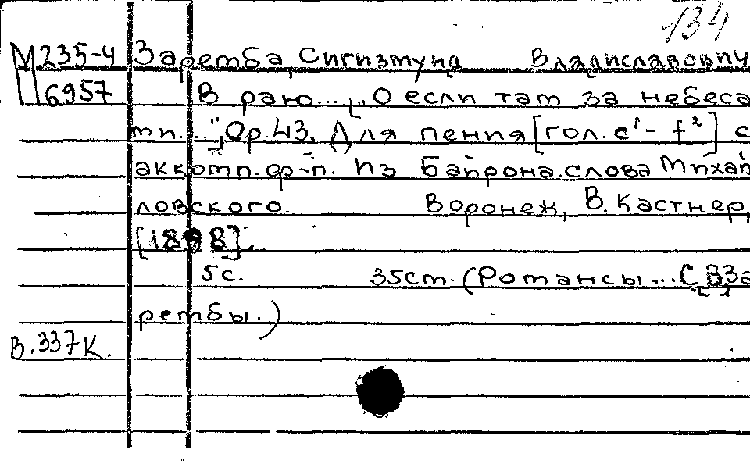 134
М 235-4 Заремба, Сигизмунд Владиславович
6957 В раю... „О если там за небеса
ми...", Op. 43. Для пения [гол. c¹ - f²] с
аккомп. ф-п. Из Байрона. слова Михай
ловского. Воронеж, В. Кастнер,
[1898].
5 с. 35 cm. (Романсы... С. В. За
рембы.)
В. 337 К.